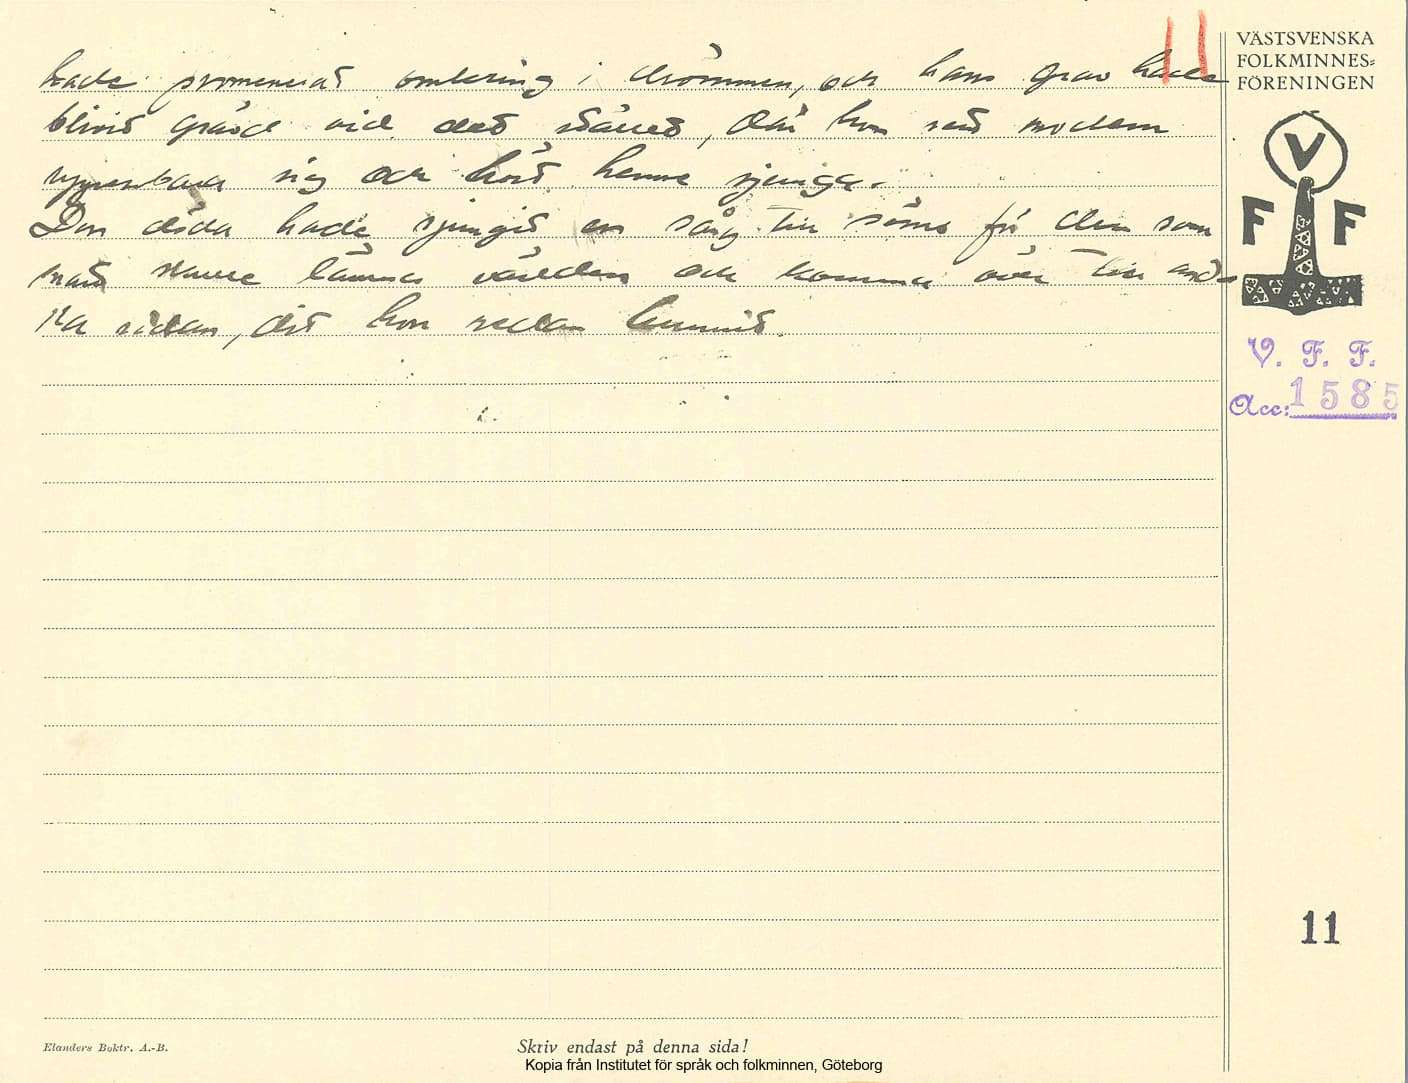 hade promenerat omkring i drömmen, och hans grav hade
blivit grävd vid det stället, där hon sett modern
uppenbara sig och hört henne sjunga.
Den döda hade sjungit en sång till söms för den som
snart skulle lämna världen och komma över till andra
sidan, dit hon redan hunnit.
11
VÄSTSVENSKA
FOLKMINNES-
FÖRENINGEN
V
F F
V. F. F.
Acc: 1585
11
Elanders Boktr. A.-B.
Skriv endast på denna sida!
Kopia från Institutet för språk och folkminnen, Göteborg